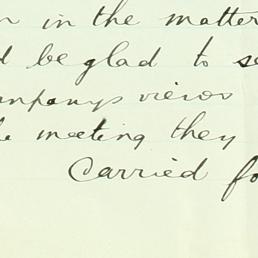 in the matter
be glad to se
ompanys views
meeting they
Carried fo